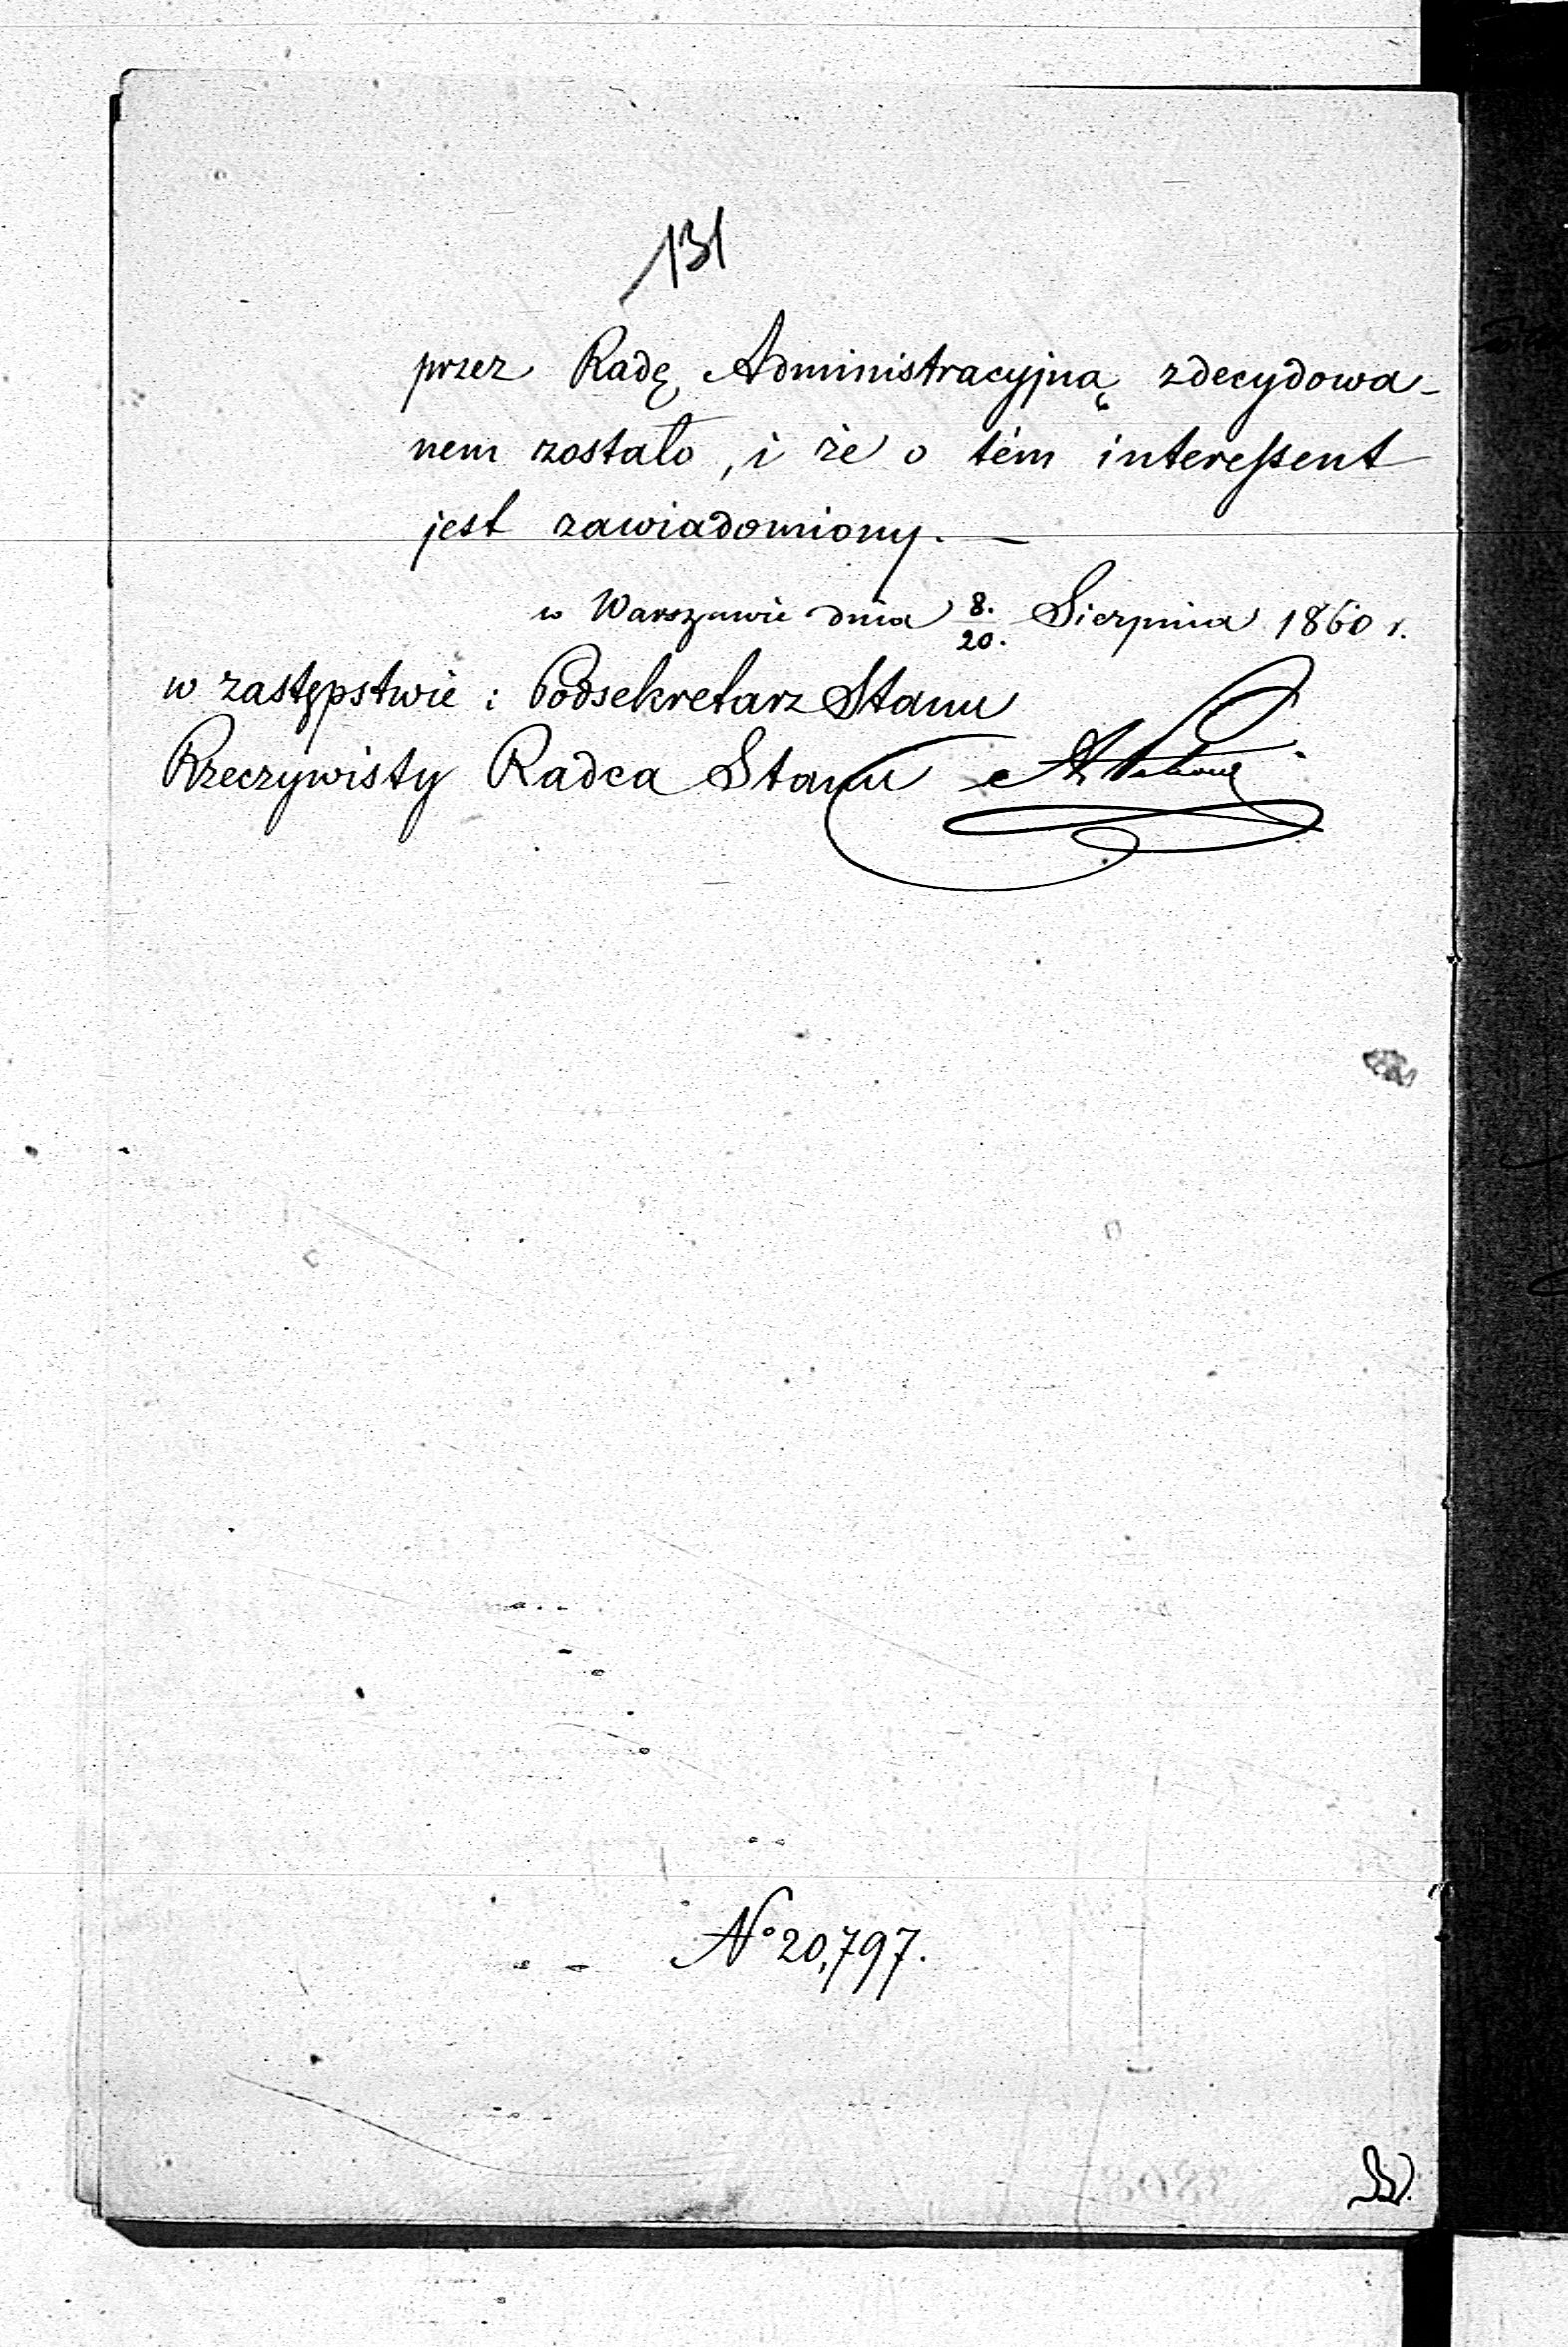 131
przez Radę Administracyjną zdecydowa-
nem zostało, i że o tém interessent
jest zawiadomiony. —
w Warszawie dnia 8./20. Sierpnia 1860 r.
w zastępstwie : Podsekretarz Stanu
Rzeczywisty Radca Stanu
№ 20,797.